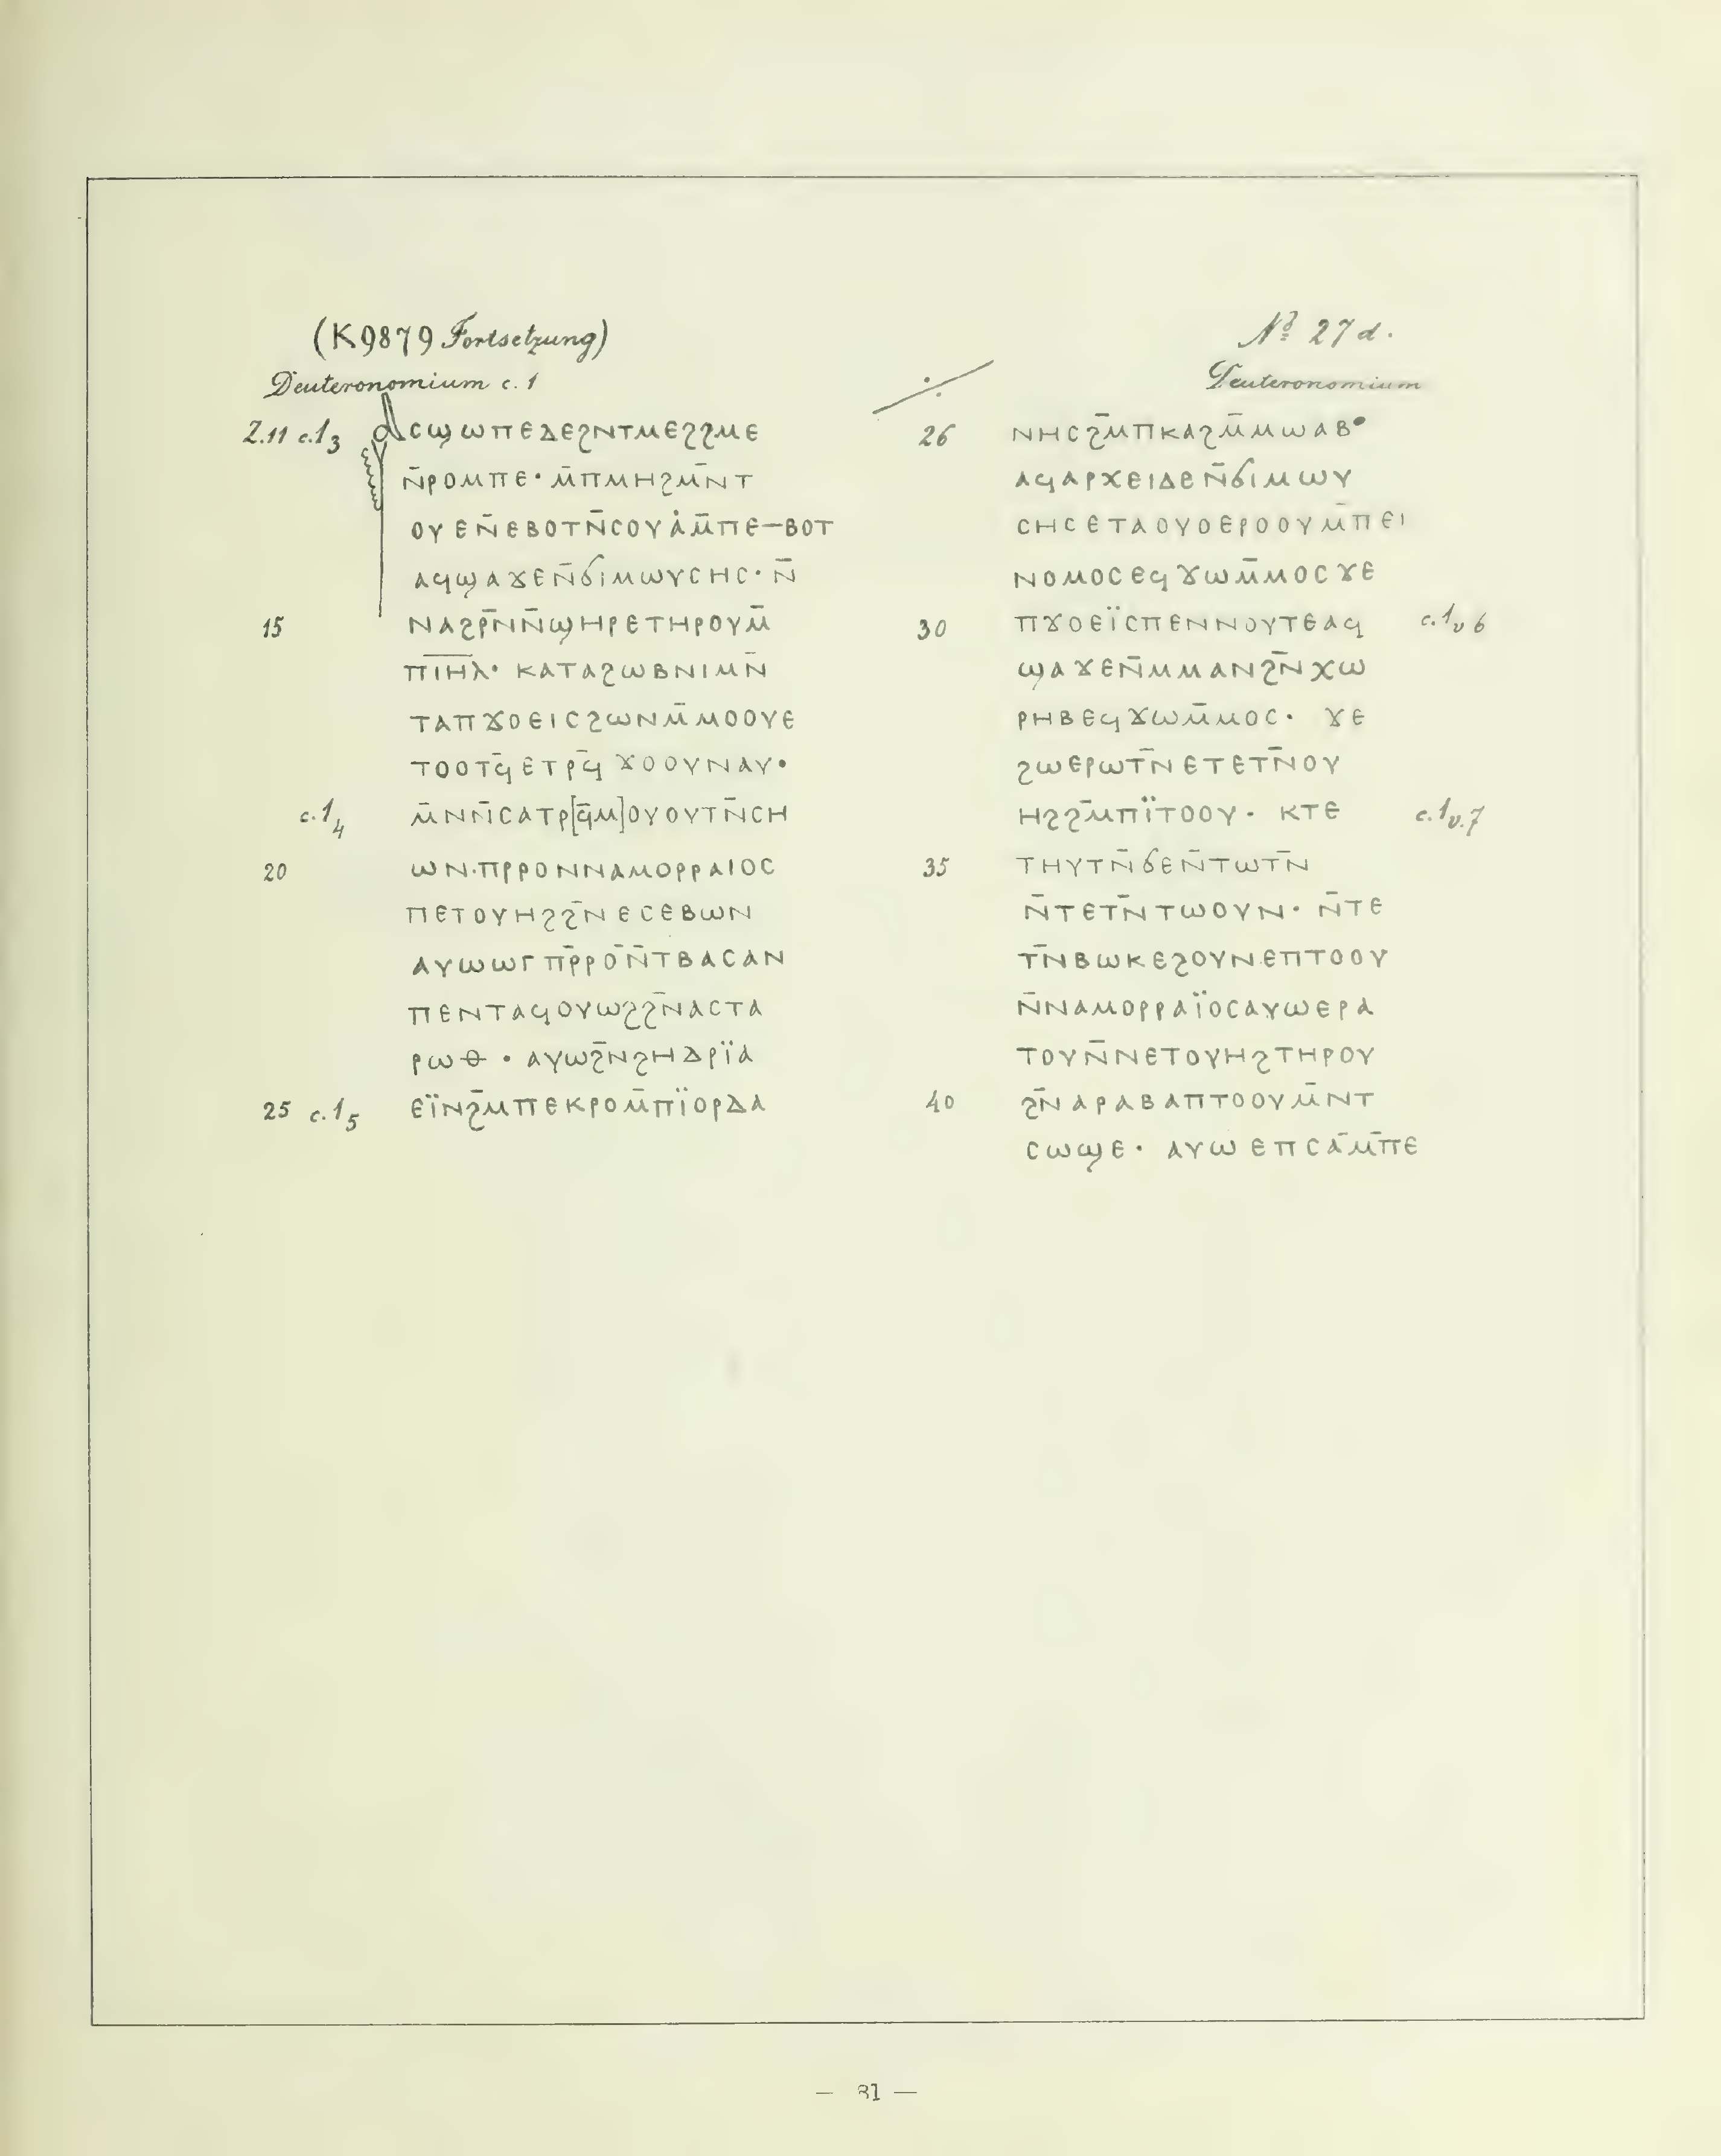 (K9879 Fortsetzung)
Deuteronomium c. 1
Z.11 c.1₃ ⲁⲥϣⲱⲡⲉⲇⲉϩⲛⲧⲙⲉϩϩⲙⲉ
ⲛ̄ⲣⲟⲙⲡⲉ· ⲙ̄ⲡⲙⲏϩⲙ̄ⲛⲧ
ⲟⲩⲉⲛ̄ⲉⲃⲟⲧⲛ̄ⲥⲟⲩⲁ̇ⲙ̄ⲡⲉ—ⲃⲟⲧ
ⲁϥϣⲁϫⲉⲛ̄ϭⲓⲙⲱⲩⲥⲏⲥ· ⲛ̄
15 ⲛⲁϩⲣ̄ⲛⲛ̄ϣⲏⲣⲉⲧⲏⲣⲟⲩⲙ̄
ⲡⲓ̅ⲏ̅ⲗ· ⲕⲁⲧⲁϩⲱⲃⲛⲓⲙⲛ̄
ⲧⲁⲡϫⲟⲉⲓⲥϩⲱⲛⲙ̄ⲙⲟⲟⲩⲉ
ⲧⲟⲟⲧϥ̄ⲉⲧⲣϥ̄ϫⲟⲟⲩⲛⲁⲩ·
c.1₄ ⲙ̄ⲛⲛ̄ⲥⲁⲧⲣ[ϥ̄ⲙ]ⲟⲩⲟⲩⲧⲛ̄ⲥⲏ
20 ⲱⲛ·ⲡⲣⲣⲟⲛⲛⲁⲙⲟⲣⲣⲁⲓⲟⲥ
ⲡⲉⲧⲟⲩⲏϩϩ̄ⲛⲉⲥⲉⲃⲱⲛ
ⲁⲩⲱⲱⲅⲡⲣ̄ⲣⲟ̄ⲛ̄ⲧⲃⲁⲥⲁⲛ
ⲡⲉⲛⲧⲁϥⲟⲩⲱϩϩ̄ⲛⲁⲥⲧⲁ
ⲣⲱⲑ · ⲁⲩⲱϩ̄ⲛϩⲏⲇⲣⲓ̈ⲁ
25 c.1₅ ⲉⲓ̈ⲛϩ̄ⲙⲡⲉⲕⲣⲟⲙ̄ⲡⲓ̈ⲟⲣⲇⲁ
№ 27d.
Deuteronomium
26 ⲛⲏⲥϩ̄ⲙⲡⲕⲁϩⲙ̄ⲙⲱⲁⲃ·
ⲁϥⲁⲣⲭⲉⲓⲇⲉⲛ̄ϭⲓⲙⲱⲩ
ⲥⲏⲥⲉⲧⲁⲟⲩⲟⲉⲣⲟⲟⲩⲙ̄ⲡⲉⲓ
ⲛⲟⲙⲟⲥⲉϥϫⲱⲙ̄ⲙⲟⲥϫⲉ
30 ⲡϫⲟⲉⲓ̈ⲥⲡⲉⲛⲛⲟⲩⲧⲉⲁϥ c.1ᵥ6
ϣⲁϫⲉⲛ̄ⲙⲙⲁⲛϩ̄ⲛⲭⲱ
ⲣⲏⲃⲉϥϫⲱⲙ̄ⲙⲟⲥ· ϫⲉ
ϩⲱⲉⲣⲱⲧ̄ⲛⲉⲧⲉⲧⲛ̄ⲟⲩ
ⲏϩϩ̄ⲙⲡⲓ̈ⲧⲟⲟⲩ· ⲕⲧⲉ c.1ᵥ.7
35 ⲧⲏⲩⲧⲛ̄ϭⲉⲛ̄ⲧⲱⲧ̄ⲛ
ⲛ̄ⲧⲉⲧⲛ̄ⲧⲱⲟⲩⲛ· ⲛ̄ⲧⲉ
ⲧ̄ⲛⲃⲱⲕⲉϩⲟⲩⲛⲉⲡⲧⲟⲟⲩ
ⲛ̄ⲛⲁⲙⲟⲣⲣⲁⲓ̈ⲟⲥⲁⲩⲱⲉⲣⲁ
ⲧⲟⲩⲛ̄ⲛⲉⲧⲟⲩⲏϩⲧⲏⲣⲟⲩ
40 ϩ̄ⲛⲁⲣⲁⲃⲁⲡⲧⲟⲟⲩⲙ̄ⲛⲧ
ⲥⲱϣⲉ· ⲁⲩⲱⲉⲡⲥⲁ̄ⲙ̄ⲡⲉ
— 81 —